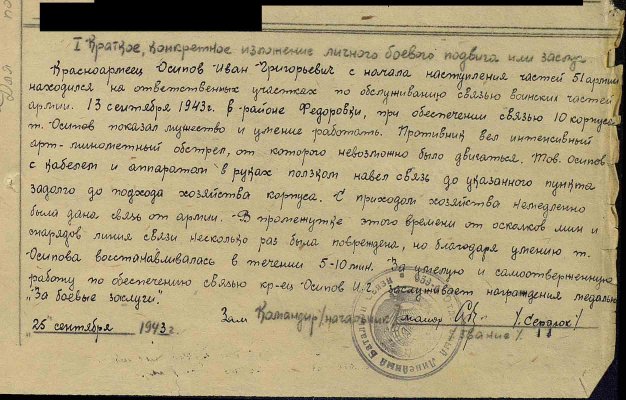 I Краткое, конкретное изложение личного боевого подвига или заслуг
Красноармеец Осипов Иван Григорьевич с начала наступления частей 51 армии
находился на ответственных участках по обслуживанию связью воинских частей
армии. 13 сентября 1943г. в районе Федоровки, при обеспечении связью 10 корпуса
т. Осипов показал мужество и умение работать. Противник вел интенсивный
арт-минометный обстрел, от которого невозможно было двигаться. Тов. Осипов
с кабелем и аппаратом в руках ползком навел связь до указанного пункта
задолго до подхода хозяйства корпуса. С приходом хозяйства немедленно
была дана связь от армии. В промежутке этого времени от осколков мин и
снарядов линия связи несколько раз была повреждена, но благодаря умению т.
Осипова восстанавливалась в течении 5-10 мин. За умелую и самоотверженную
работу по обеспечению связью кр-ец Осипов И.Г. заслуживает награждения медалью
„За боевые заслуги".
Зам Командир/начальник/ майор
/звание/
25 сентября 1943г.
Для
Линейный Батал